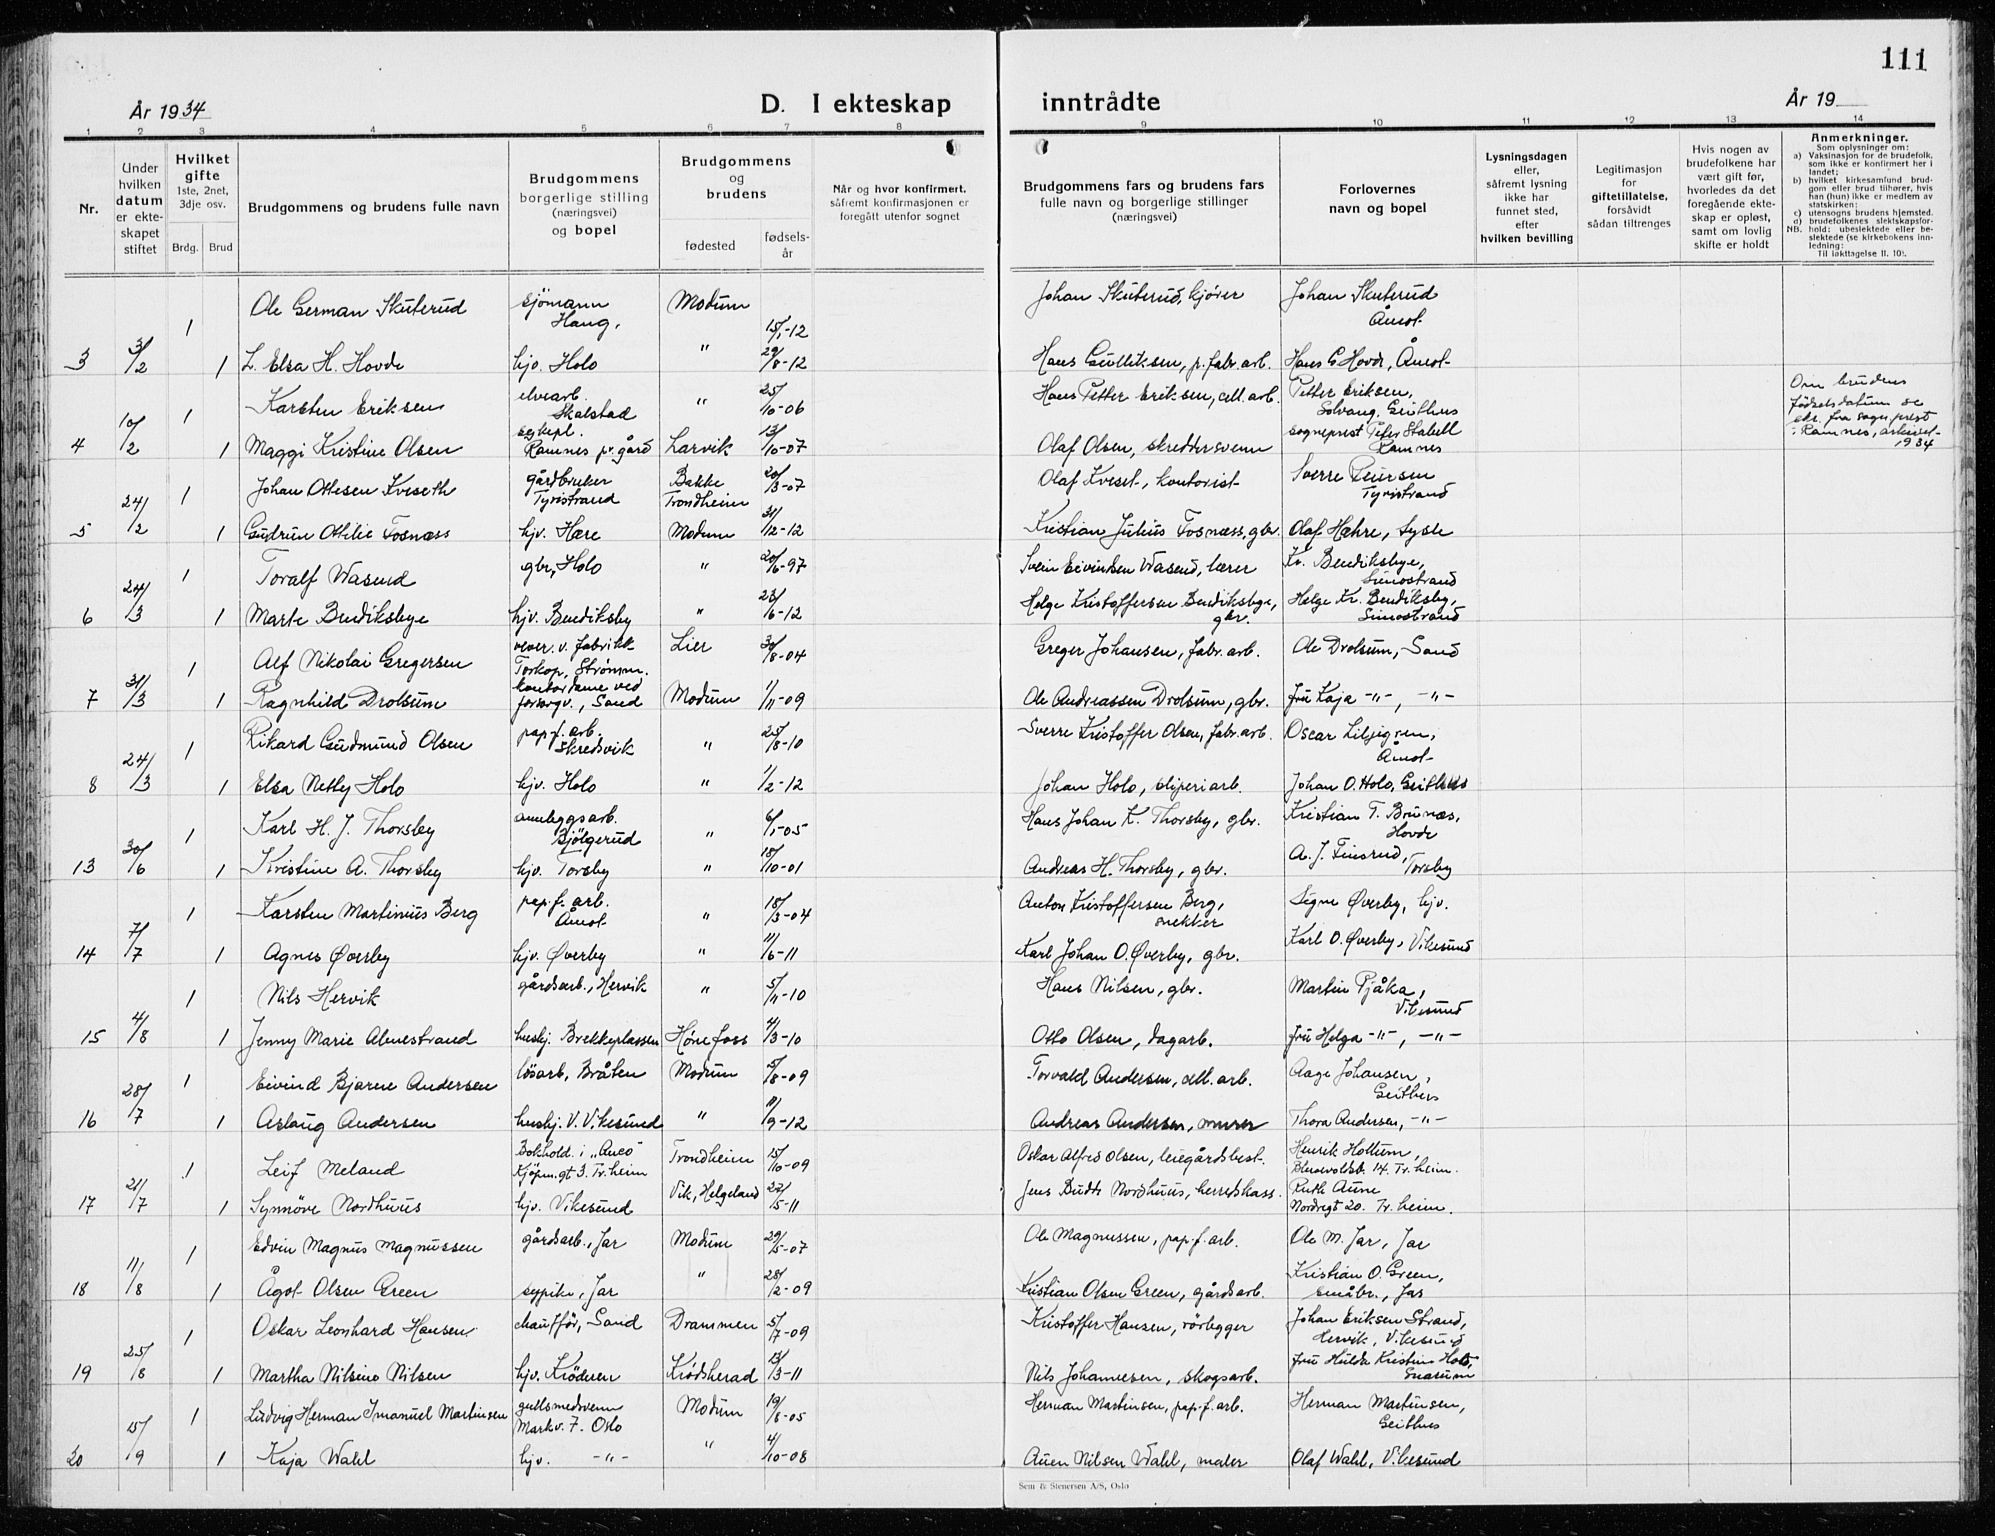 111
År 1934
D. I ekteskap inntrådte
År 19
1 2 3 4 5 6 7 8 9 10 11 12 13 14
Nr.
Under hvilken datum er ekteskapet stiftet
Hvilket gifte
1ste, 2net, 3dje osv.
Brdg. Brud
Brudgommens og brudens fulle navn
Brudgommens borgerlige stilling (næringsvei) og bopel
Brudgommens og brudens
fødested
fødselsår
Når og hvor konfirmert, såfremt konfirmasjonen er foregått utenfor sognet
Brudgommens fars og brudens fars fulle navn og borgerlige stillinger (næringsvei)
Forlovernes navn og bopel
Lysningsdagen eller, såfremt lysning ikke har funnet sted, efter hvilken bevilling
Legitimasjon for giftetillatelse, forsåvidt sådan tiltrenges
Hvis nogen av brudefolkene har vært gift før, hvorledes da det foregående ekteskap er opløst, samt om lovlig skifte er holdt
Anmerkninger.
Som oplysninger om:
a) Vaksinasjon for de brudefolk, som ikke er konfirmert her i landet;
b) hvilket kirkesamfund brudgom eller brud tilhører, hvis han (hun) ikke er medlem av statskirken;
c) utensogns brudens hjemsted.
d) brudefolkenes slektskapsforhold: ubeslektede eller beslektede (se kirkebokens innledning:
NB. Til iakttagelse II. 10).
1 Ole German Skuterud sjömann Haug, Modum 15/1-12 Johan Skuterud, kjører Johan Skuterud Åmot
3 3/2 1 L. Elsa H. Hovde hjv. Holo " 29/8-12 Hans Gulliksen, p. fabr. arb. Hans G Hovde, Åmot
1 Karsten Eriksen elvearb. Skalstad " 25/10-06 Hans Petter Eriksen, cell. arb. Petter Eriksen, Solvang, Geithus
4 10/2 1 Maggi Kristine Olsen Ramnes pr. gård Larvik 13/10-07 Olaf Olsen, skreddersvenn sogneprest Peter Stabell Ramnes
Om brudens fødselsdatum se skr. fra sogneprest i Ramnes, arkivet 1934
1 Johan Ottesen Kveseth gårdbruker Tyristrand Bakke Trondheim 20/3-07 Olaf Kveset, kontorist Sverre Tyristrand
5 24/2 1 Gudrun Otilie Fosnæss hjv. Hære Modum 31/12-12 Kristian Julius Fosnæss, gbr. Olaf Hæhre, Sysle
1 Toralf Wasend gbr, Holo " 20/6-97 Svein Eivindsen Wasend, lærer Kr. Bendiksbye, Simostrand
6 24/3 1 Marte Bendiksbye hjv. Bendiksby " 23/6-12 Helge Kristoffersen Bendiksbye, gbr. Helge Kr. Bendiksby, Simostrand
1 Alf Nikolai Gregersen vever. v. fabrikk Torkop, Strømm. Lier 30/8-04 Greger Johansen, fabr. arb. Ole Drolsum, Sand
7 31/3 1 Ragnhild Drolsum kontordame ved forsorgv., Sand Modum 1/11-09 Ole Andreassen Drolsum, gbr. fru Kaja -"-, -"-
1 Rikard Gudmund Olsen pap.f. arb. Skredsvik " 25/8-10 Sverre Kristoffer Olsen, fabr. arb. Oscar Liljegren, Åmot
8 24/3 1 Elsa Nelly Holo hjv. Holo " 1/2-12 Johan Holo, sliperiarb. Johan O. Holo, Geithus
1 Karl H. J. Thorsby anleggsarb. Bjölgerud " 6/1-05 Hans Johan K. Thorsby, gbr. Kristian T. Brunæs, Hovde
13 30/6 1 Kristine A. Thorsby hjv. Torsby " 18/10-01 Andreas H. Thorsby, gbr. A. J. Finsrud, Torsby
1 Karsten Martinius Berg pap.f. arb. Åmot " 18/3-04 Anton Kristoffersen Berg, snekker Signe Øverby, hjv.
14 7/7 1 Agnes Øverby hjv. Øverby " 11/6-11 Karl Johan O. Øverby, gbr. Karl O. Øverby, Vikesund
1 Nils Hervik gårdsarb., Hervik " 5/11-10 Hans Nilsen, gbr. Martin Pjåka, Vikesund
15 4/8 1 Jenny Marie Almestrand hushj. Brekkeplassen Hønefoss 4/3-10 Otto Olsen, dagarb. fru Helga -"-, -"-
1 Eivind Bjarne Andersen lösarb, Bråten Modum 5/8-09 Torvald Andersen, cell. arb. Aage Johansen, Geithus
16 28/7 1 Aslaug Andersen hushj. V. Vikesund " 11/9-12 Andreas Andersen, murer Thora Andersen, -"-
1 Leif Meland Bokhold. i Kjöpm.gt 3. Tr.heim Trondheim 15/10-09 Oskar Alfred Olsen, leiegårdsbest. Henrik Holtum, 14. Tr.heim.
17 21/7 1 Synnöve Nordhuus hjv. Vikesund Vik, Helgeland 22/5-11 Jens Budts Nordhuus, herredskass. Ruth Aune Nordregt 20. Tr. heim.
1 Edvin Magnus Magnussen gårdsarb., Jar Modum 29/5-07 Ole Magnussen, pap.f. arb. Ole M. Jar, Jar
18 11/8 1 Ågot Olsen Green sypike, Jar " 28/2-09 Kristian Olsen Green, gårdsarb. Kristian O. Green, småbr., Jar
1 Oskar Leonhard Hansen chaufför, Sand Drammen 5/7-09 Kristoffer Hansen, rörlegger Johan Eriksen Strand, Hervik, Vikesund
19 25/8 1 Martha Nilsine Nilsen hjv. Kröderen Krödsherad 13/3-11 Nils Johannesen, skogsarb. fru Hulda Kristine Holt, Snarum
1 Ludvig Herman Imanuel Martinsen gullsmedsvenn Markv. 7. Oslo Modum 19/8-05 Herman Martinsen, pap.f. arb. Herman Martinsen, Geithus
20 15/9 1 Kaja Wahl hjv. -"- " 4/10-08 Auen Nilsen Wahl, maler Olaf Wahl, Vikesund
Sem & Stenersen A/S, Oslo